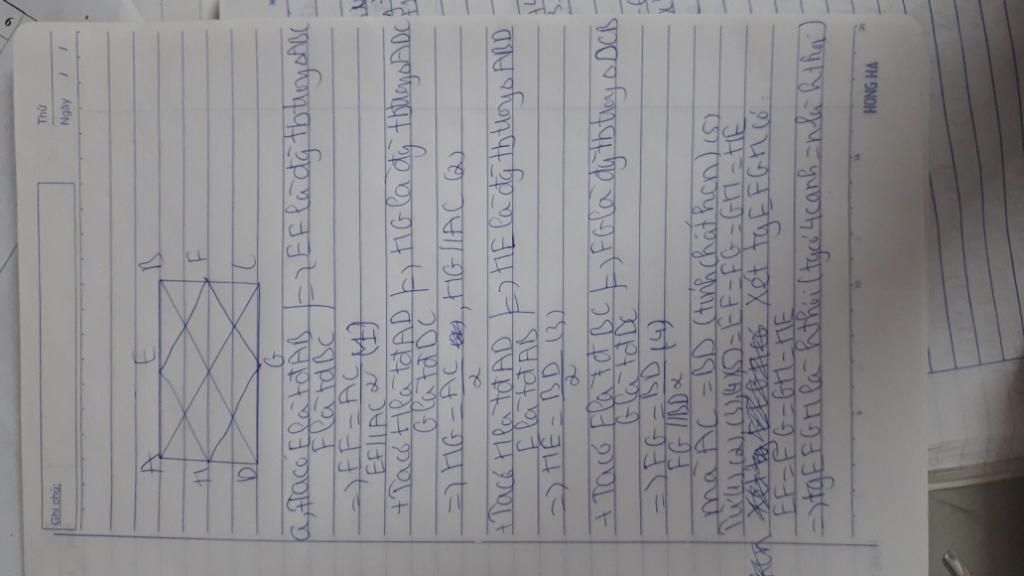 Thứ
Ngày / /
Ghi chú:
A E B
H F
D G C
a, + Ta có E là td AB } => EF là đg tb tugg ABC
F là td BC
=> EF = AC/2 (1)
EF // AC
+ Ta có H là td AD } => HG là đg tb tugg ADC
G là td DC
=> HG = AC/2, HG // AC (2)
+ Ta có H là td AD } => HE là đg tb tugg ABD
E là td AB
=> HE = BD/2 (3)
+ Ta có F là td BC } => FG là đg tb tugg DCB
G là td DC
=> FG = BD/2 (4)
FG // BD
mà AC = BD (tính chất hcn) (5)
Từ (1) (2) (3) (4) (5) => EF = FG = GH = HE
Xét tg EFGH có:
EF = FG = GH = HE
=> tg EFGH là h thoi (tg có 4 cạnh = nhau là h thoi)
HONG HA